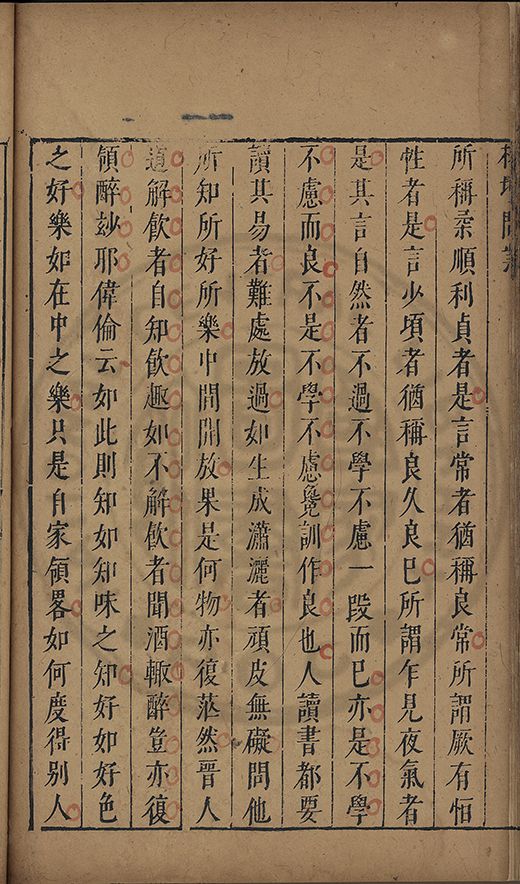 所稱柔順利貞者是言常者猶稱良常所謂厥有恒
性者是言少頃者猶稱良久良已所謂乍見夜氣者
是其言自然者不過不學不慮一段而已亦是不學
不慮而良不是不學不慮纔訓作良也人讀書都要
讀其易者難處放過如生成瀟灑者頑皮無礙問他
所知所好所樂中間開放果是何物亦復茫然晉人
道解飲者自知飲趣如不解飲者聞酒輙醉豈亦復
領醉玅耶偉倫云如此則知如知味之知好如好色
之好樂如在中之樂只是自家領畧如何度得别人